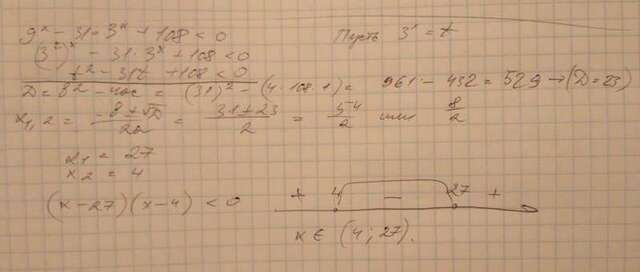 9ˣ - 31 · 3ˣ + 108 < 0
Пусть 3ˣ = t
(3²)ˣ - 31 · 3ˣ + 108 < 0
t² - 31t + 108 < 0
D = B² - 4ac = (31)² - (4 · 108 · 1) = 961 - 432 = 529 → (D = 23)
x₁,₂ = (-B ± √D)/2a = (31 ± 23)/2 = 54/2 или 8/2
x₁ = 27
x₂ = 4
(x - 27)(x - 4) < 0
+ 4 - 27 +
x ∈ (4; 27).